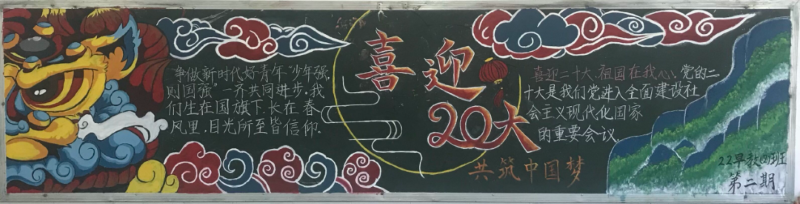 争做新时代好青年"少年强,
则国强"一齐共同进步,我
们生在国旗下,长在春
风里,目光所至皆信仰.
喜迎
20大
共筑中国梦
喜迎二十大,祖国在我心,党的二
十大是我们党进入全面建设社
会主义现代化国家
的重要会议
22早教(4)班
第二期